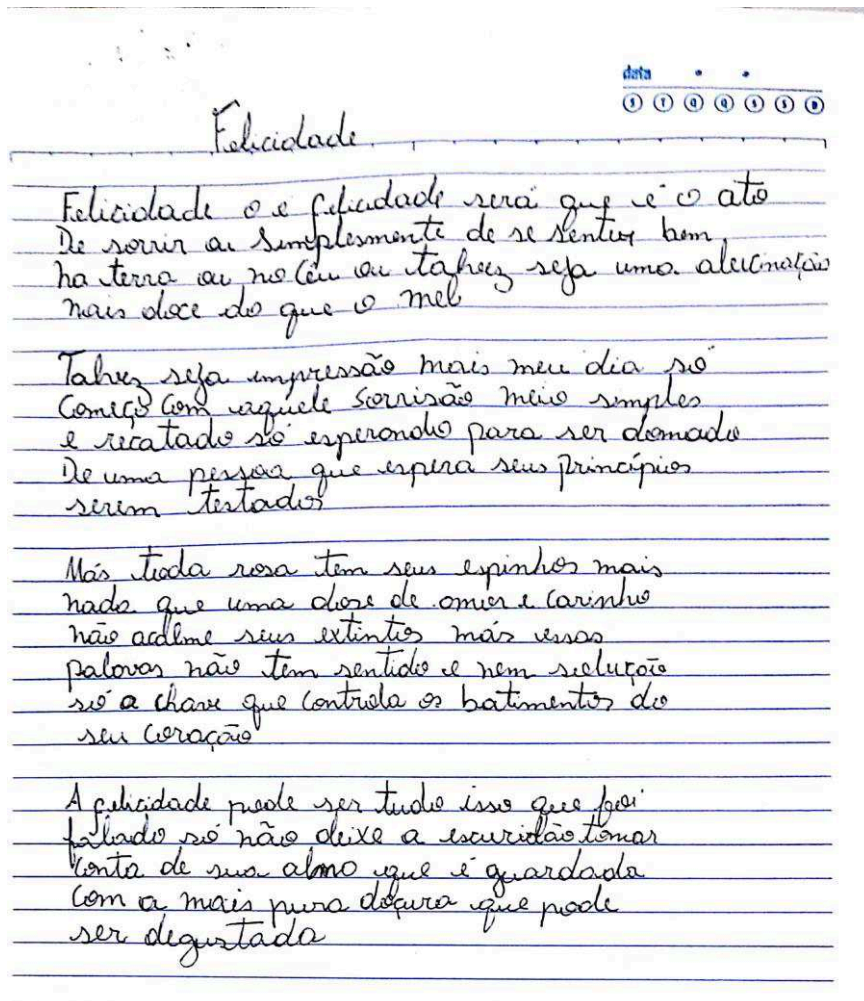 data
S T Q Q S S D
Felicidade
Felicidade o e felicidade será que é o ato
De sorrir ou Simplesmente de se sentir bem
na terra ou no Céu ou talvez seja uma alucinação
mais doce do que o mel
Talvez seja impressão mais meu dia só
Começo com aquele sorrisão meio simples
e recatado só esperando para ser domado
De uma pessoa que espera seus Princípios
serem testados
Más toda rosa tem seus espinhos mais
nada que uma dose de amor e carinho
não acalme seus extintos más essas
palavas não tem sentido e nem solução
só a chave que controla os batimentos do
seu coração
A felicidade pode ser tudo isso que foi
falado só não deixe a escuridão tomar
conta de sua alma que é guardada
com a mais pura doçura que pode
ser degustada